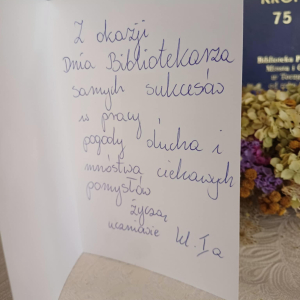 Z okazji
Dnia Bibliotekarza
samych sukcesów
w pracy
pogody ducha i
mnóstwa ciekawych
pomysłów
życzą
uczniowie kl. Ia
75
Biblioteka